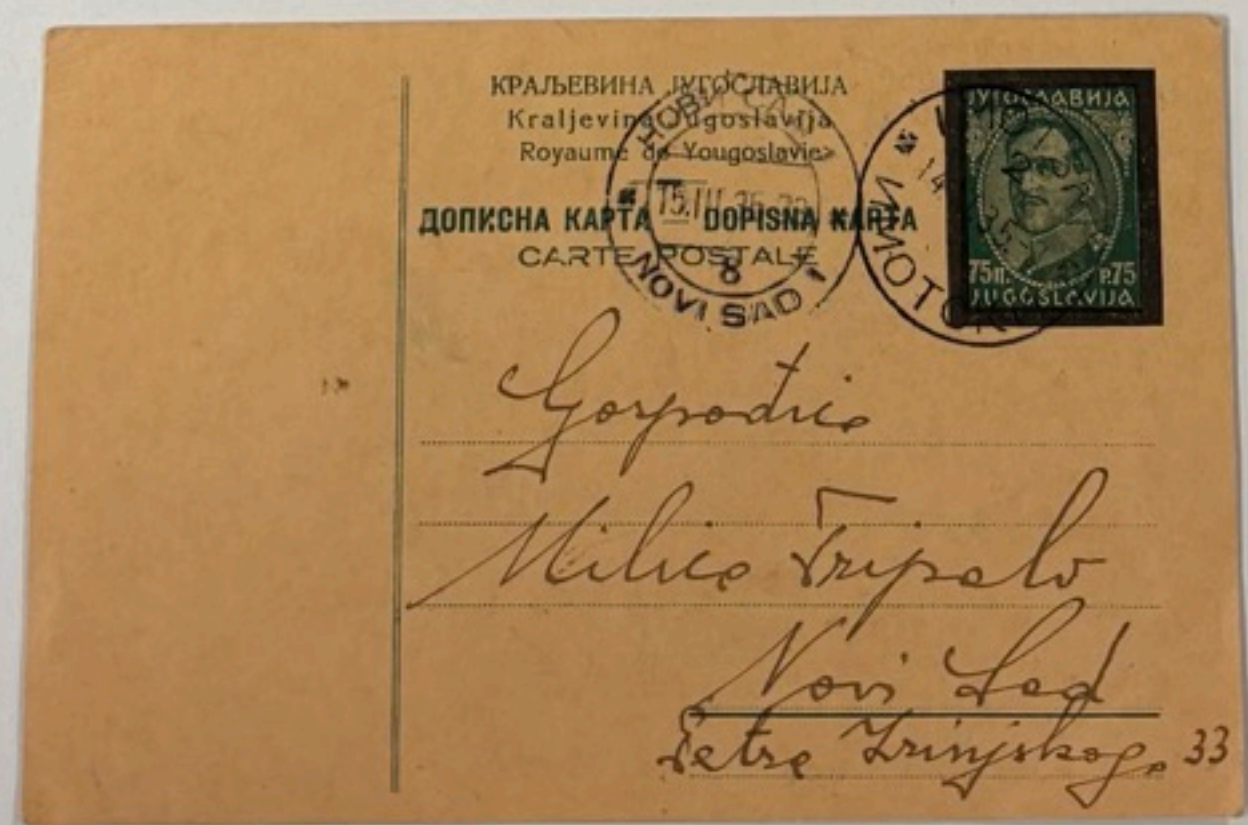 КРАЉЕВИНА ЈУГОСЛАВИЈА
Kraljevina Jugoslavija
Royaume de Yougoslavie
ДОПИСНА КАРТА DOPISNA KARTA
CARTE POSTALE
НОВИ САД
15.III 35
8
NOVI SAD 1
ЈУГОСЛАВИЈА
75П. P.75
JUGOSLAVIJA
ИМОТСКИ
14
35
Gospođica
Milica Tripalo
Novi Sad
Petra Zrinjskog, 33